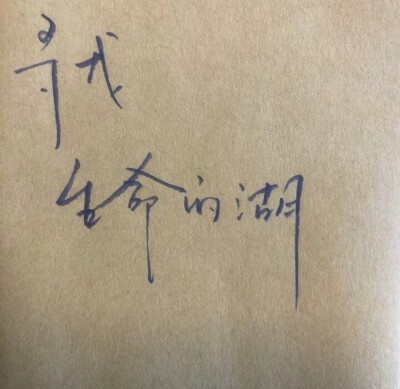 寻找
生命的湖